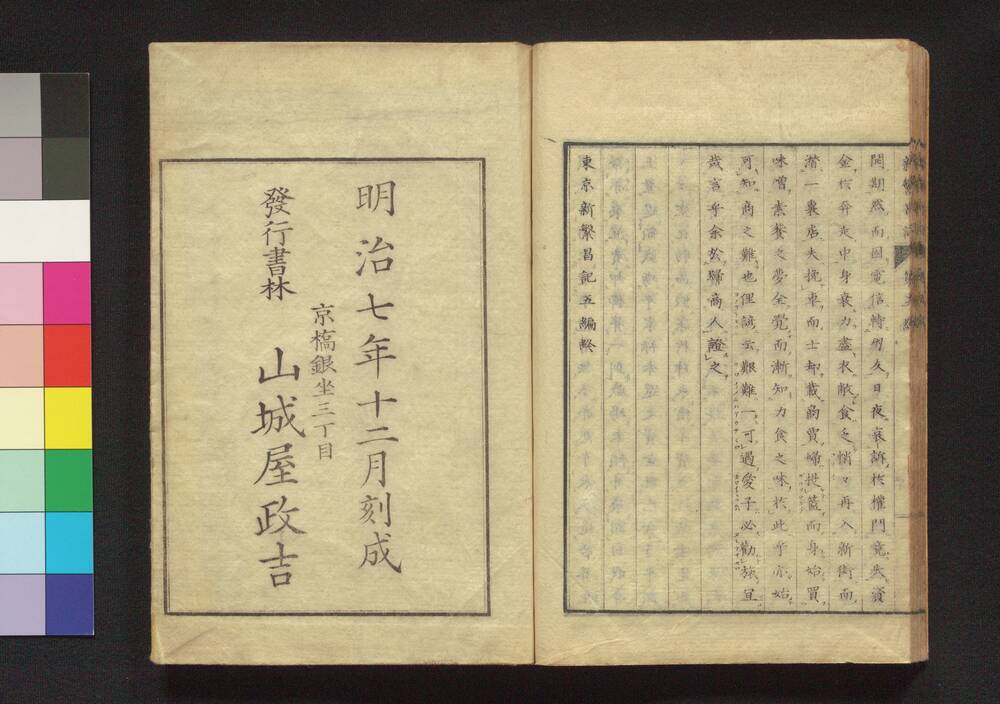 開期然而固電信轉頻久日夜哀訴於權門竟失資
金於弈夾中身衰力盡衣敝食乏悄々再入新街而
潜一裏店夫挽車而士却載商賣婦提籃而身始買
味噌素餐之夢全覺而漸知力食之味於此乎亦始
可知商之難也俚諺云艱難一可過愛子必勸旅宜
哉言乎余於歸商人證之
東京新繁昌記五編終
明治七年十二月刻成
京橋銀坐三丁目
發行書林 山城屋政吉